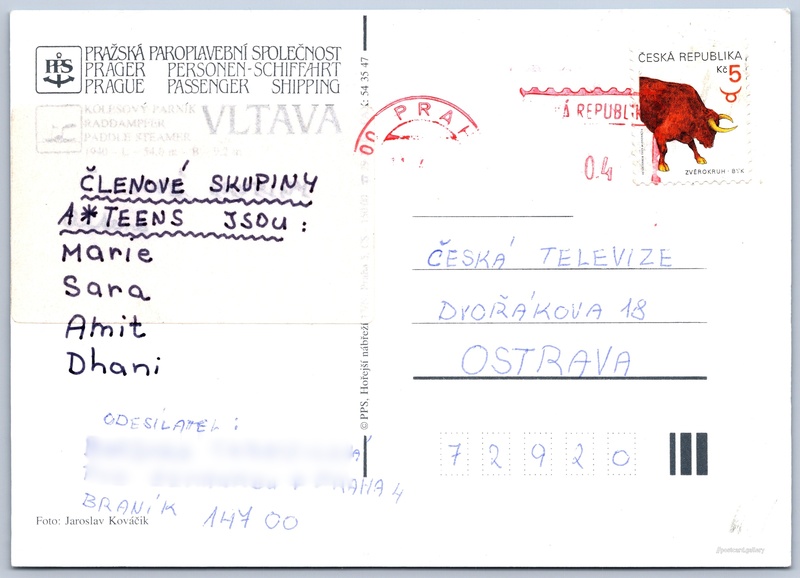 PPS
PRAŽSKÁ PAROPLAVEBNÍ SPOLEČNOST
PRAGER PERSONEN-SCHIFFAHRT
PRAGUE PASSENGER SHIPPING
KOLESOVÝ PARNÍK
RADDAMPFER
PADDLE STEAMER
VLTAVA
ČLENOVÉ SKUPINY
A*TEENS JSOU:
Marie
Sara
Amit
Dhani
ODESÍLATEL:
PRAHA 4
BRANÍK 147 00
Foto: Jaroslav Kováčik
© PPS, Hořejší nábřeží
54 35 47
PRAH
Á REPUBLI
0.4
ČESKÁ REPUBLIKA
Kč 5
ZVĚROKRUH - BÝK
ČESKÁ TELEVIZE
DVOŘÁKOVA 18
OSTRAVA
72920